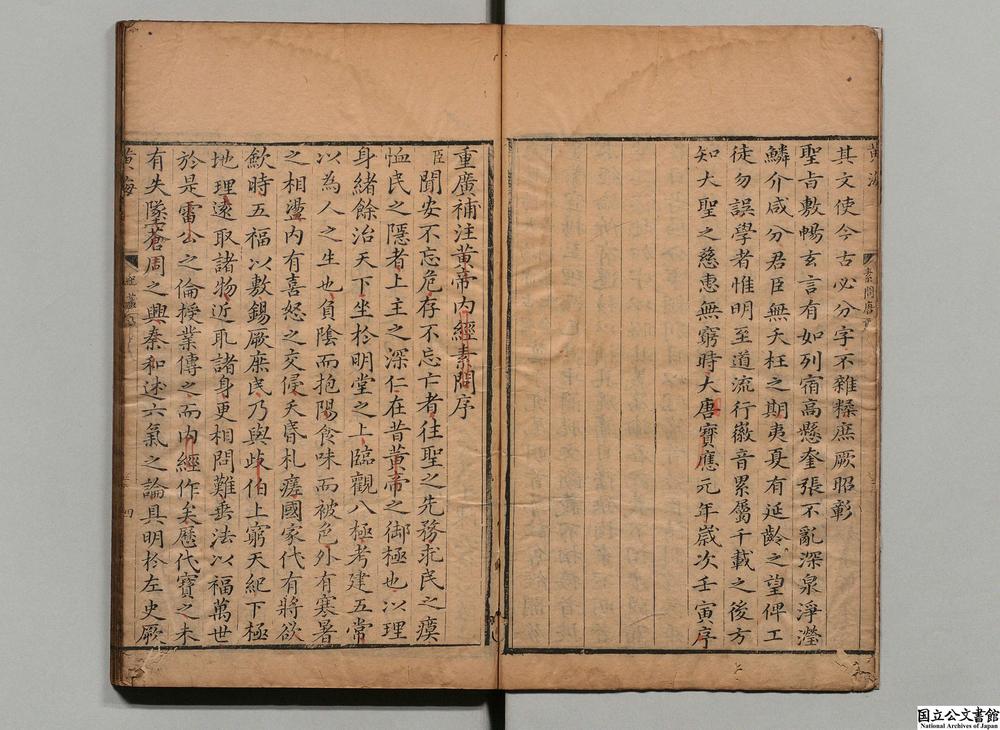 其文使今古必分字不雜糅庶厥昭彰
聖旨敷暢玄言有如列宿高懸奎張不亂深泉淨瀅
鱗介咸分君臣無夭枉之期夷夏有延齡之望俾工
徒勿誤學者惟明至道流行徽音累屬千載之後方
知大聖之慈惠無窮時大唐寶應元年歲次壬寅序
重廣補注黃帝内經素問序
臣聞安不忘危存不忘亡者徃聖之先務求民之瘼
恤民之隱者上主之深仁在昔黃帝之御極也以理
身緒餘治天下坐於明堂之上臨觀八極考建五常
以為人之生也負陰而抱陽食味而被色外有寒暑
之相盪内有喜怒之交侵夭昏札瘥國家代有將欲
歛時五福以敷錫厥庶民乃與歧伯上窮天紀下極
地理遠取諸物近取諸身更相問難垂法以福萬世
於是雷公之倫授業傳之而内經作矣歷代寶之未
有失墜蒼周之興秦和述六氣之論具明於左史厥
黃海
素問唐序
四
国立公文書館
National Archives of Japan